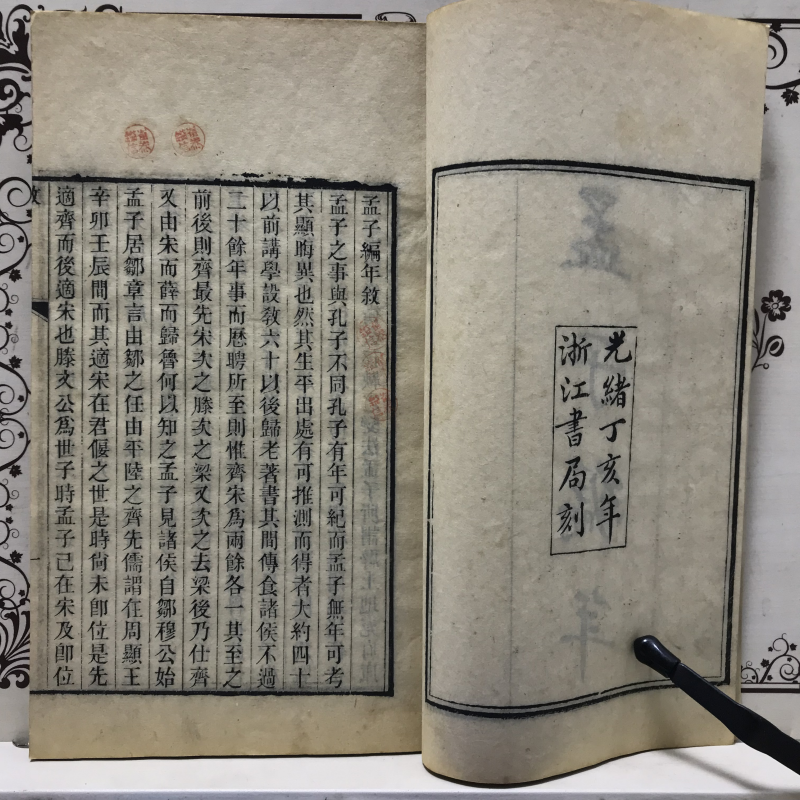 光緒丁亥年
浙江書局刻
孟子編年敘
孟子之事與孔子不同孔子有年可紀而孟子無年可考
其顯晦異也然其生平出處有可推測而得者大約四十
以前講學設敎六十以後歸老著書其間傳食諸侯不過
二十餘年事而歷聘所至則惟齊宋爲兩餘各一其至之
前後則齊最先宋次之滕次之梁又次之去梁後乃仕齊
又由宋而薛而歸魯何以知之孟子見諸侯自鄒穆公始
孟子居鄒章言由鄒之任由平陸之齊先儒謂在周顯王
辛卯壬辰間而其適宋在君偃之世是時尙未卽位是先
適齊而後適宋也滕文公爲世子時孟子已在宋及卽位